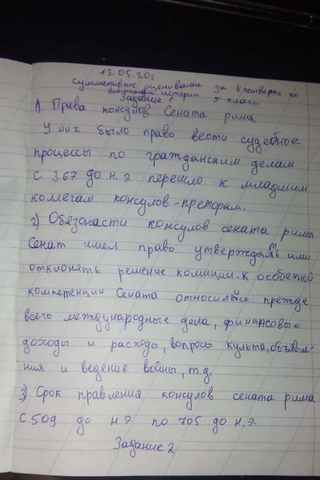 13.05.20г
Суммативное оценивание за 4 четверть по
всемирной истории 5 класс
Задание 1
1) Права консулов Сената рима.
У них было право вести судебное
процессы по гражданским делам
с 367 до н.э перешло к младшим
коллегам консулов-преторам.
2) Обязоности консулов сената рима
Сенат имел право утверждать или
отклонять решение комиции. К особенной
компетенции Сената относились прежде
всего международные дела, финансовые
доходы и расходы, вопросы культа, объявле-
ния и ведение войны, т.д.
3) Срок правления консулов сената рима
С 509 до н.э по 705 до н.э.
Задание 2